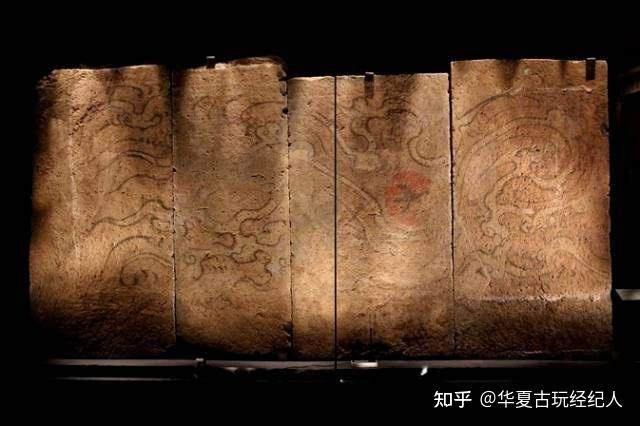 知乎 @华夏古玩经纪人